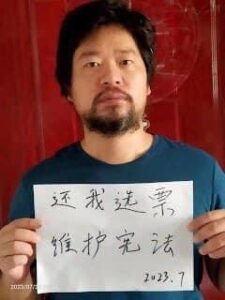 还我选票
维护宪法
2023.7